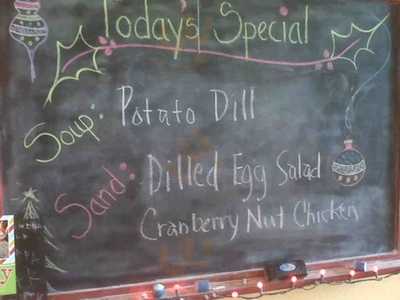 Today's Special
Soup: Potato Dill
Sand: Dilled Egg Salad
Cranberry Nut Chicken